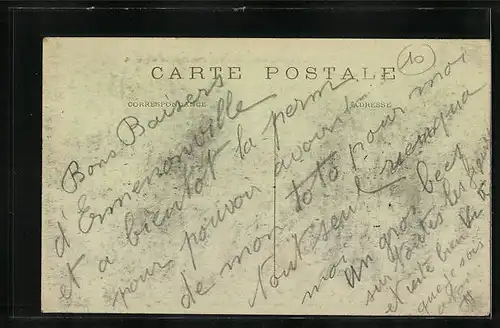 CARTE POSTALE
10
CORRESPONDANCE
ADRESSE
Bons Baisers
d'Ermenonville
et a bientôt la perm
pour pouvoir avoir
de mon toto pour moi
tout seul
moi
Un gros bec
sur toutes les
et reste bien
que je sois